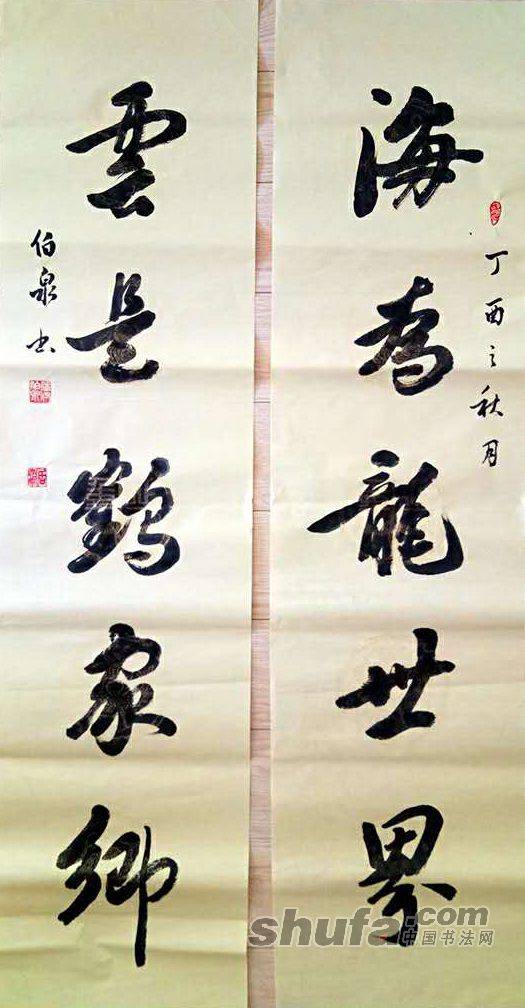 海為龍世界
丁酉之秋月
雲是鶴家鄉
伯泉书
shufa.com
中国书法网